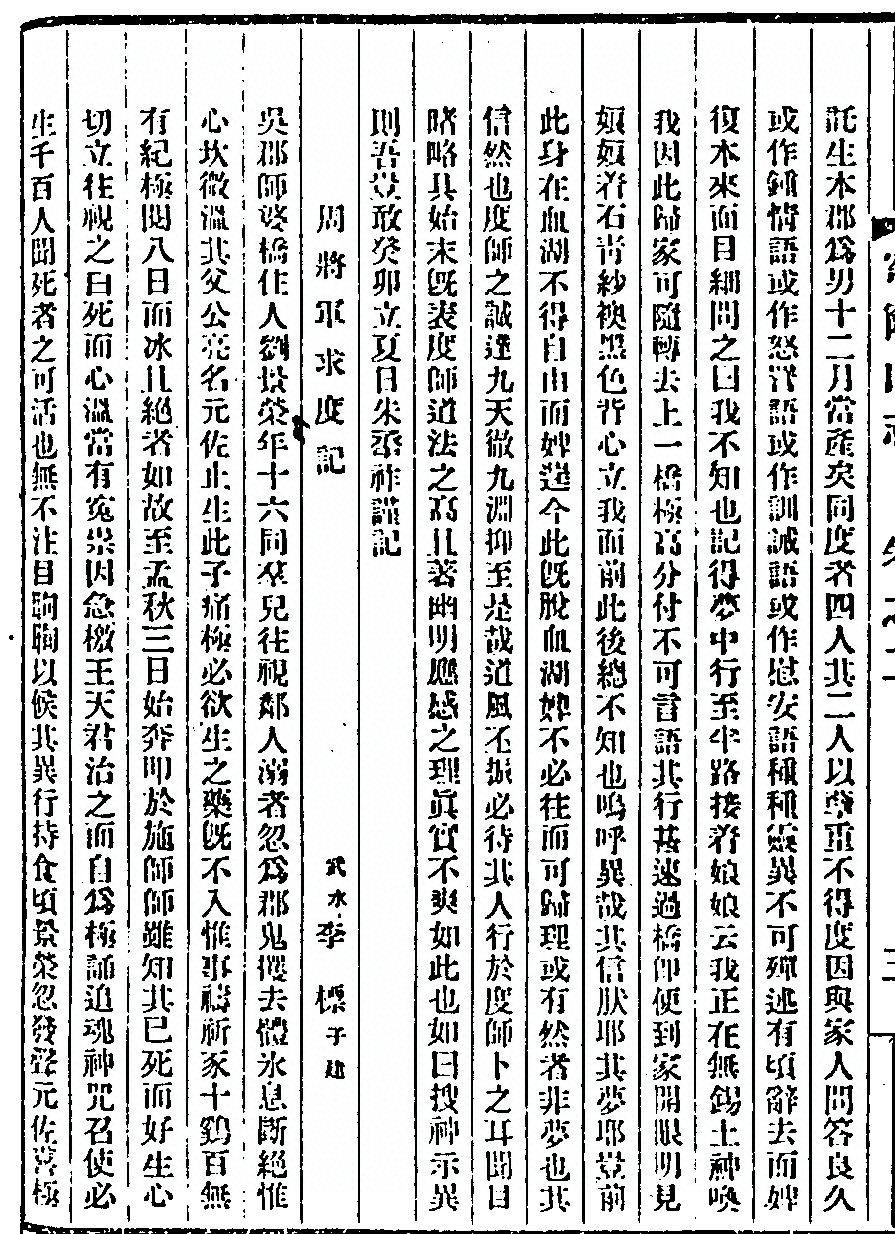 託生本郡爲男十二月當產矣同度者四人其二人以尊重不得度因與家人問答良久
或作鍾情語或作怒詈語或作訓誡語或作慰安語種種靈異不可殫述有頃辭去而婢
復本來面目細問之曰我不知也記得夢中行至半路接着娘娘云我正在無錫土神喚
我因此歸家可隨轉去上一橋極高分付不可言語其行甚速過橋卽便到家開眼明見
娘娘着石靑紗襖黑色背心立我面前此後總不知也嗚呼異哉其信肰耶其夢耶豈前
此身在血湖不得自由而婢還今此旣脫血湖婢不必往而可歸理或有然者非夢也其
信然也度師之誠達九天徹九淵抑至是哉道風不振必待其人行於度師卜之耳聞目
睹略具始末旣表度師道法之高且著幽明應感之理眞實不爽如此也如曰搜神示異
則吾豈敢癸卯立夏日朱丕祚謹記
周將軍求度記
武水李標子建
吳郡師婆橋住人劉景榮年十六同羣兒往視鄰人溺者忽爲郡鬼攖去體氷息斷絕惟
心坎微溫其父公亮名元佐止生此子痛極必欲生之藥旣不入惟事禱祈豕十鷄百無
有紀極閱八日而冰且絕者如故至孟秋三日始奔叩於施師師雖知其已死而好生心
切立往視之曰死而心溫當有寃祟因急檄王天君治之而自爲極誦追魂神咒召使必
生千百人聞死者之可活也無不注目眴眴以候其異行持食頃景榮忽發聲元佐喜極